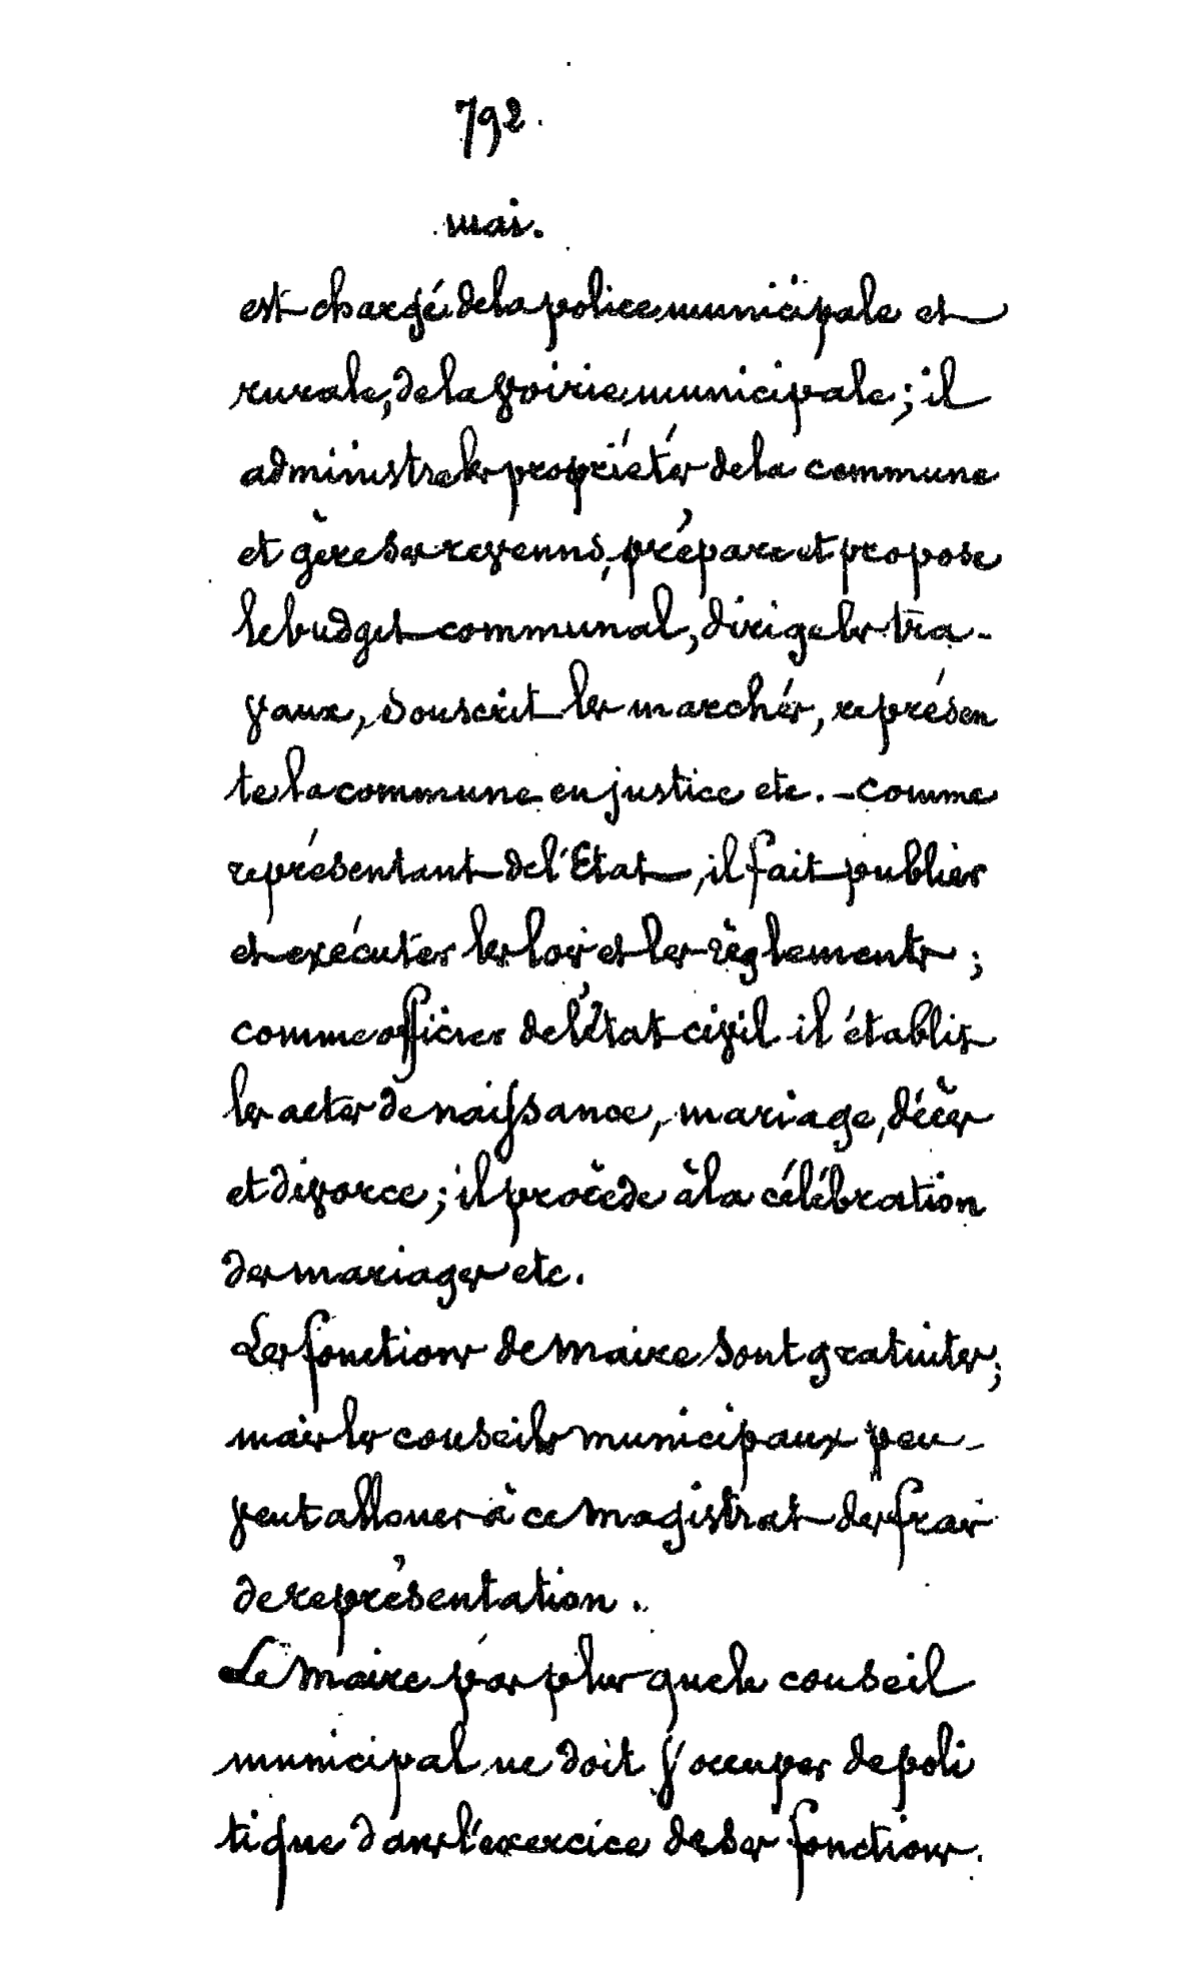 792.
mai.
est chargé de la police municipale et
rurale, de la voirie municipale ; il
administre les propriétés de la commune
et gère ses revenus, prépare et propose
le budget communal, dirige les tra-
vaux, souscrit les marchés, représen
te la commune en justice etc. - comme
représentant de l'Etat, il fait publier
et exécuter les lois et les règlements ;
comme officier de l'Etat civil il établit
les actes de naissance, mariage, décès
et divorce ; il procède à la célébration
des mariages etc.
Les fonctions de maire sont gratuites ;
mais les conseils municipaux peu-
vent allouer à ce magistrat des frais
de représentation.
Le maire pas plus que le conseil
municipal ne doit s'occuper de poli
tique dans l'exercice de ses fonctions.